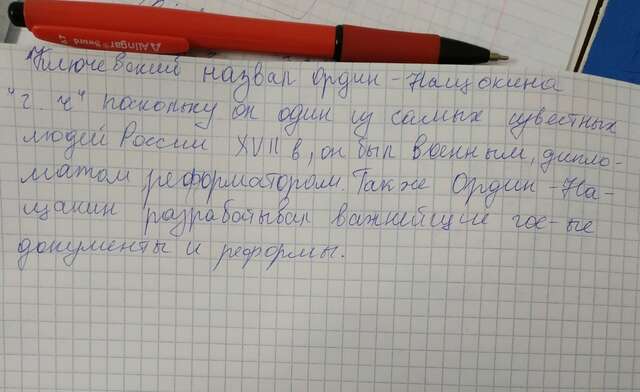 Alingar
Ключевский назвал Ордин-Нащокина
"г. ч" поскольку он один из самых известных
людей России XVII в, он был военным, дипло-
матом реформатором. Также Ордин-На-
щакин разрабатывал важнейщие гос-ые
документы и реформы.